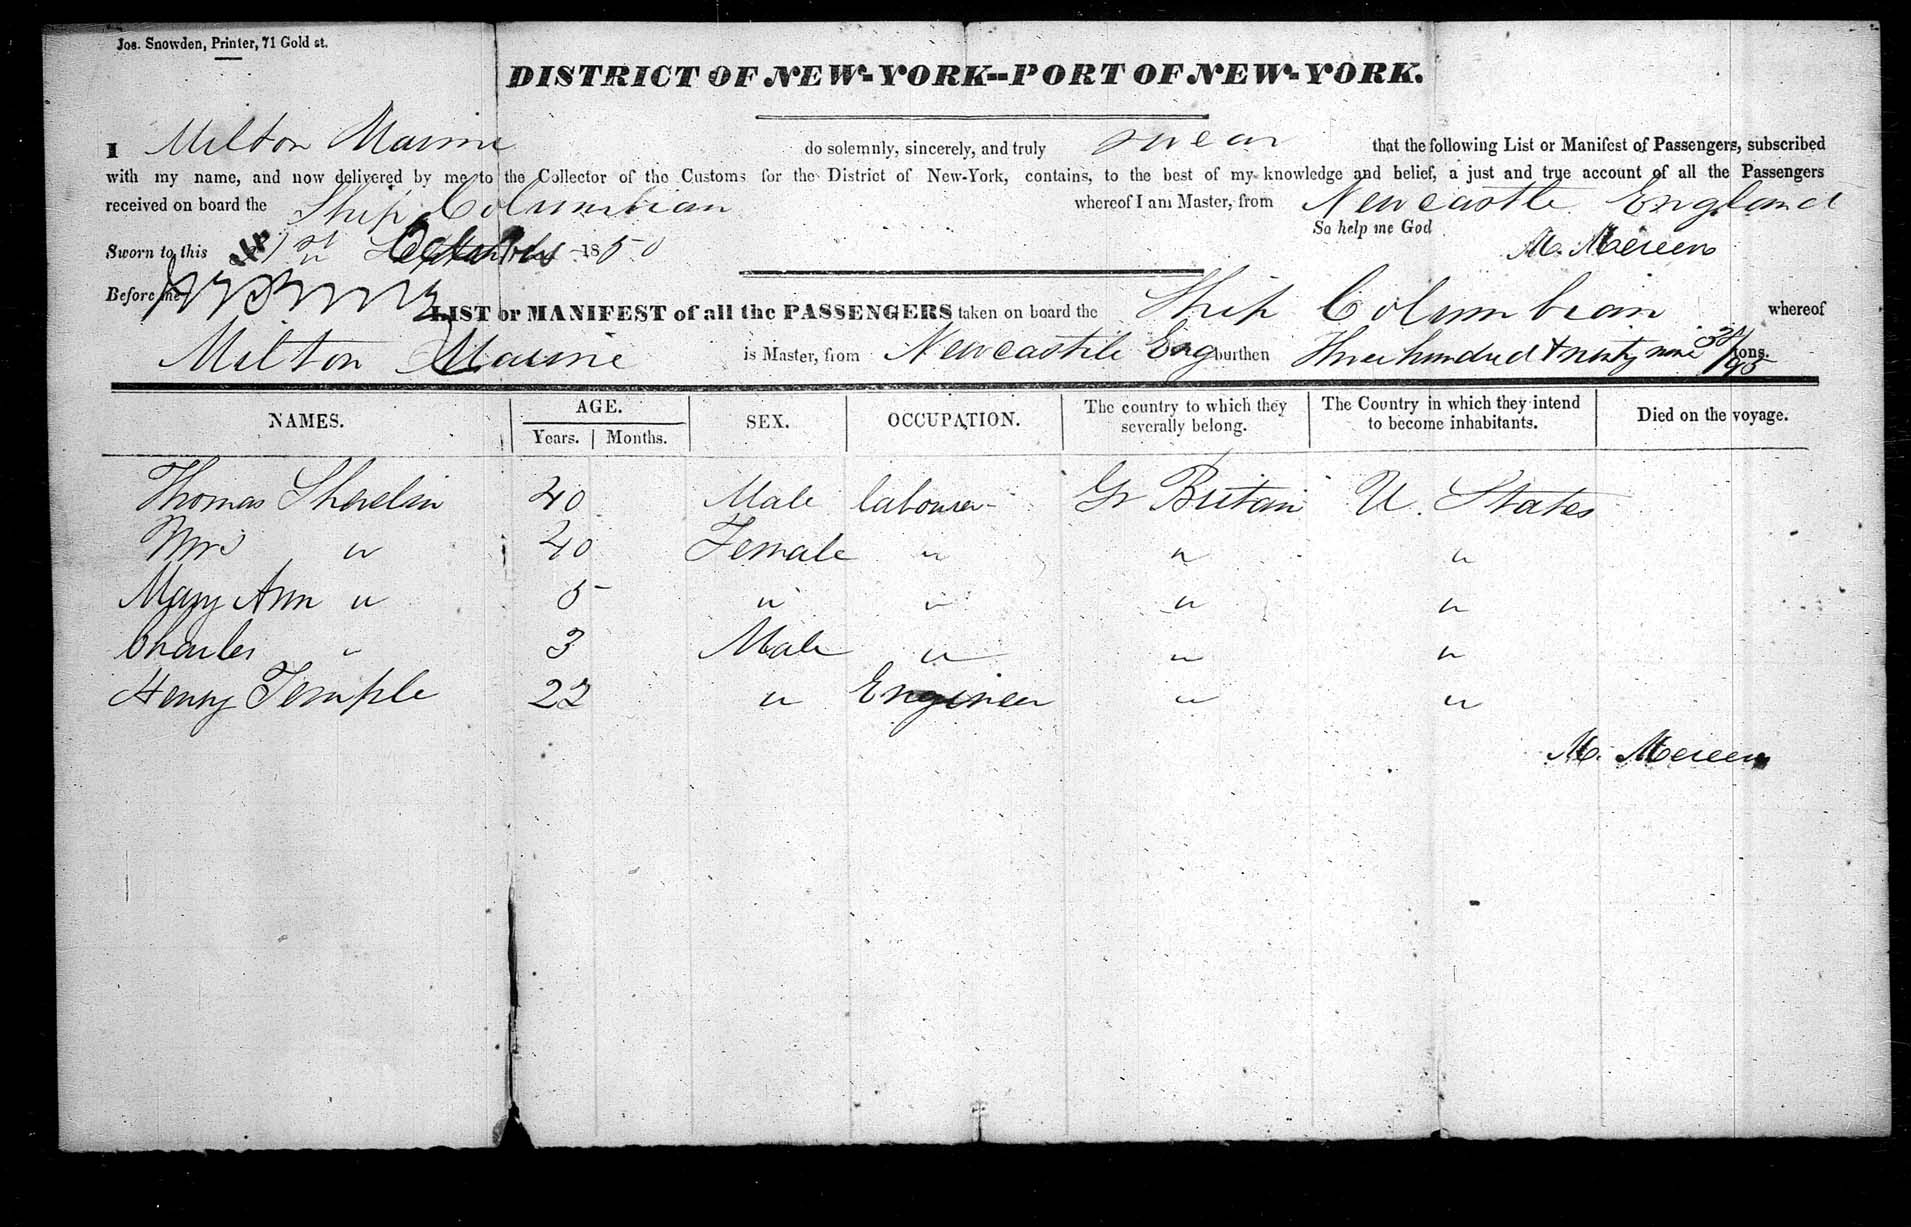 Jos. Snowden, Printer, 71 Gold st.
DISTRICT OF NEW-YORK--PORT OF NEW-YORK.
I Milton do solemnly, sincerely, and truly swear that the following List or Manifest of Passengers, subscribed
with my name, and now delivered by me to the Collector of the Customs for the District of New-York, contains, to the best of my knowledge and belief, a just and true account of all the Passengers
received on board the Ship Columbian whereof I am Master, from Newcastle England
So help me God
Sworn to this 1st 1850 M. Mereen
Before me
LIST or MANIFEST of all the PASSENGERS taken on board the Ship Columbian whereof
Milton is Master, from Newcastile Eng burthen Three hundred & ninty nine tons.
NAMES. AGE. SEX. OCCUPATION. The country to which they severally belong. The Country in which they intend to become inhabitants. Died on the voyage.
Years. Months.
Thomas 40 Male labourer Gr Britain U. States
Mrs " 40 Female " " "
Mary Ann " 5 " " " "
Charles " 3 Male " " "
Henry Temple 22 " Engineer " "
M. Mereen